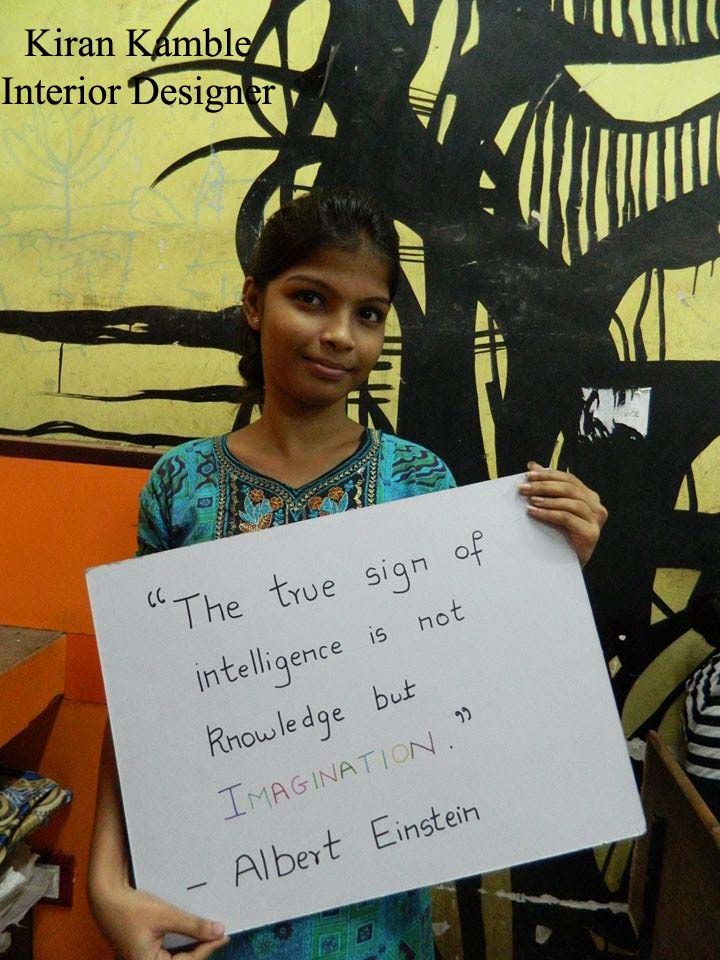 Kiran Kamble
Interior Designer
“The true sign of
intelligence is not
knowledge but
IMAGINATION.”
– Albert Einstein